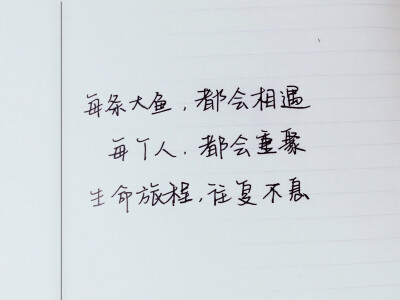 每条大鱼，都会相遇
每个人．都会重聚
生命旅程，往复不息